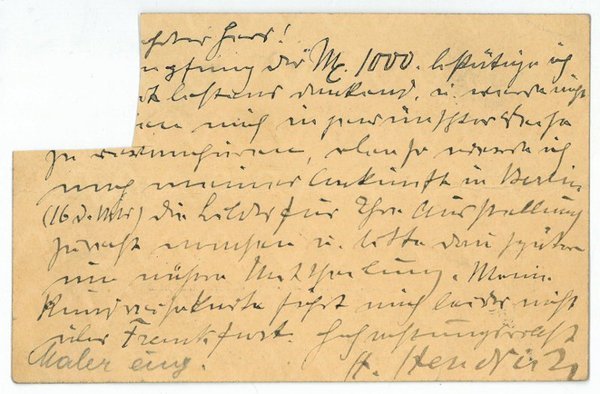 hrter Herr!
pfang der M. 1000. bestätige ich
bestens dankend, u. werde nicht
en mich in gewünschter Weise
zu revanchieren, ebenso werde ich
nach meiner Ankunft in Berlin
(16 d. Mts) die Bilder für Ihre Ausstellung
zurecht machen u. bitte dann später
um nähere Mittheilung. Meine
Rundreisekarte führt mich leider nicht
über Frankfurt. Hochachtungsvollst
Maler eing. H. Hendrich